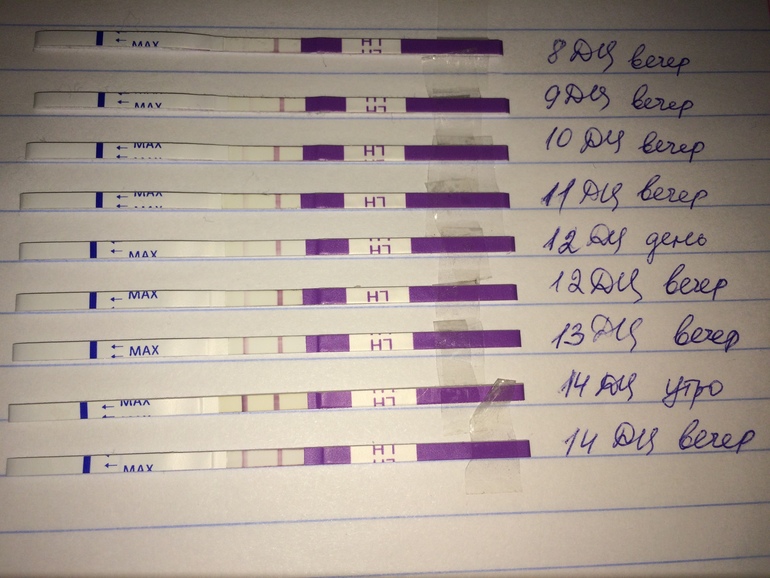 ← MAX LH 8 ДЦ вечер
← MAX LH 9 ДЦ вечер
← MAX LH 10 ДЦ вечер
← MAX LH 11 ДЦ вечер
← MAX LH 12 ДЦ день
← MAX LH 12 ДЦ вечер
← MAX LH 13 ДЦ вечер
← MAX LH 14 ДЦ утро
← MAX LH 14 ДЦ вечер